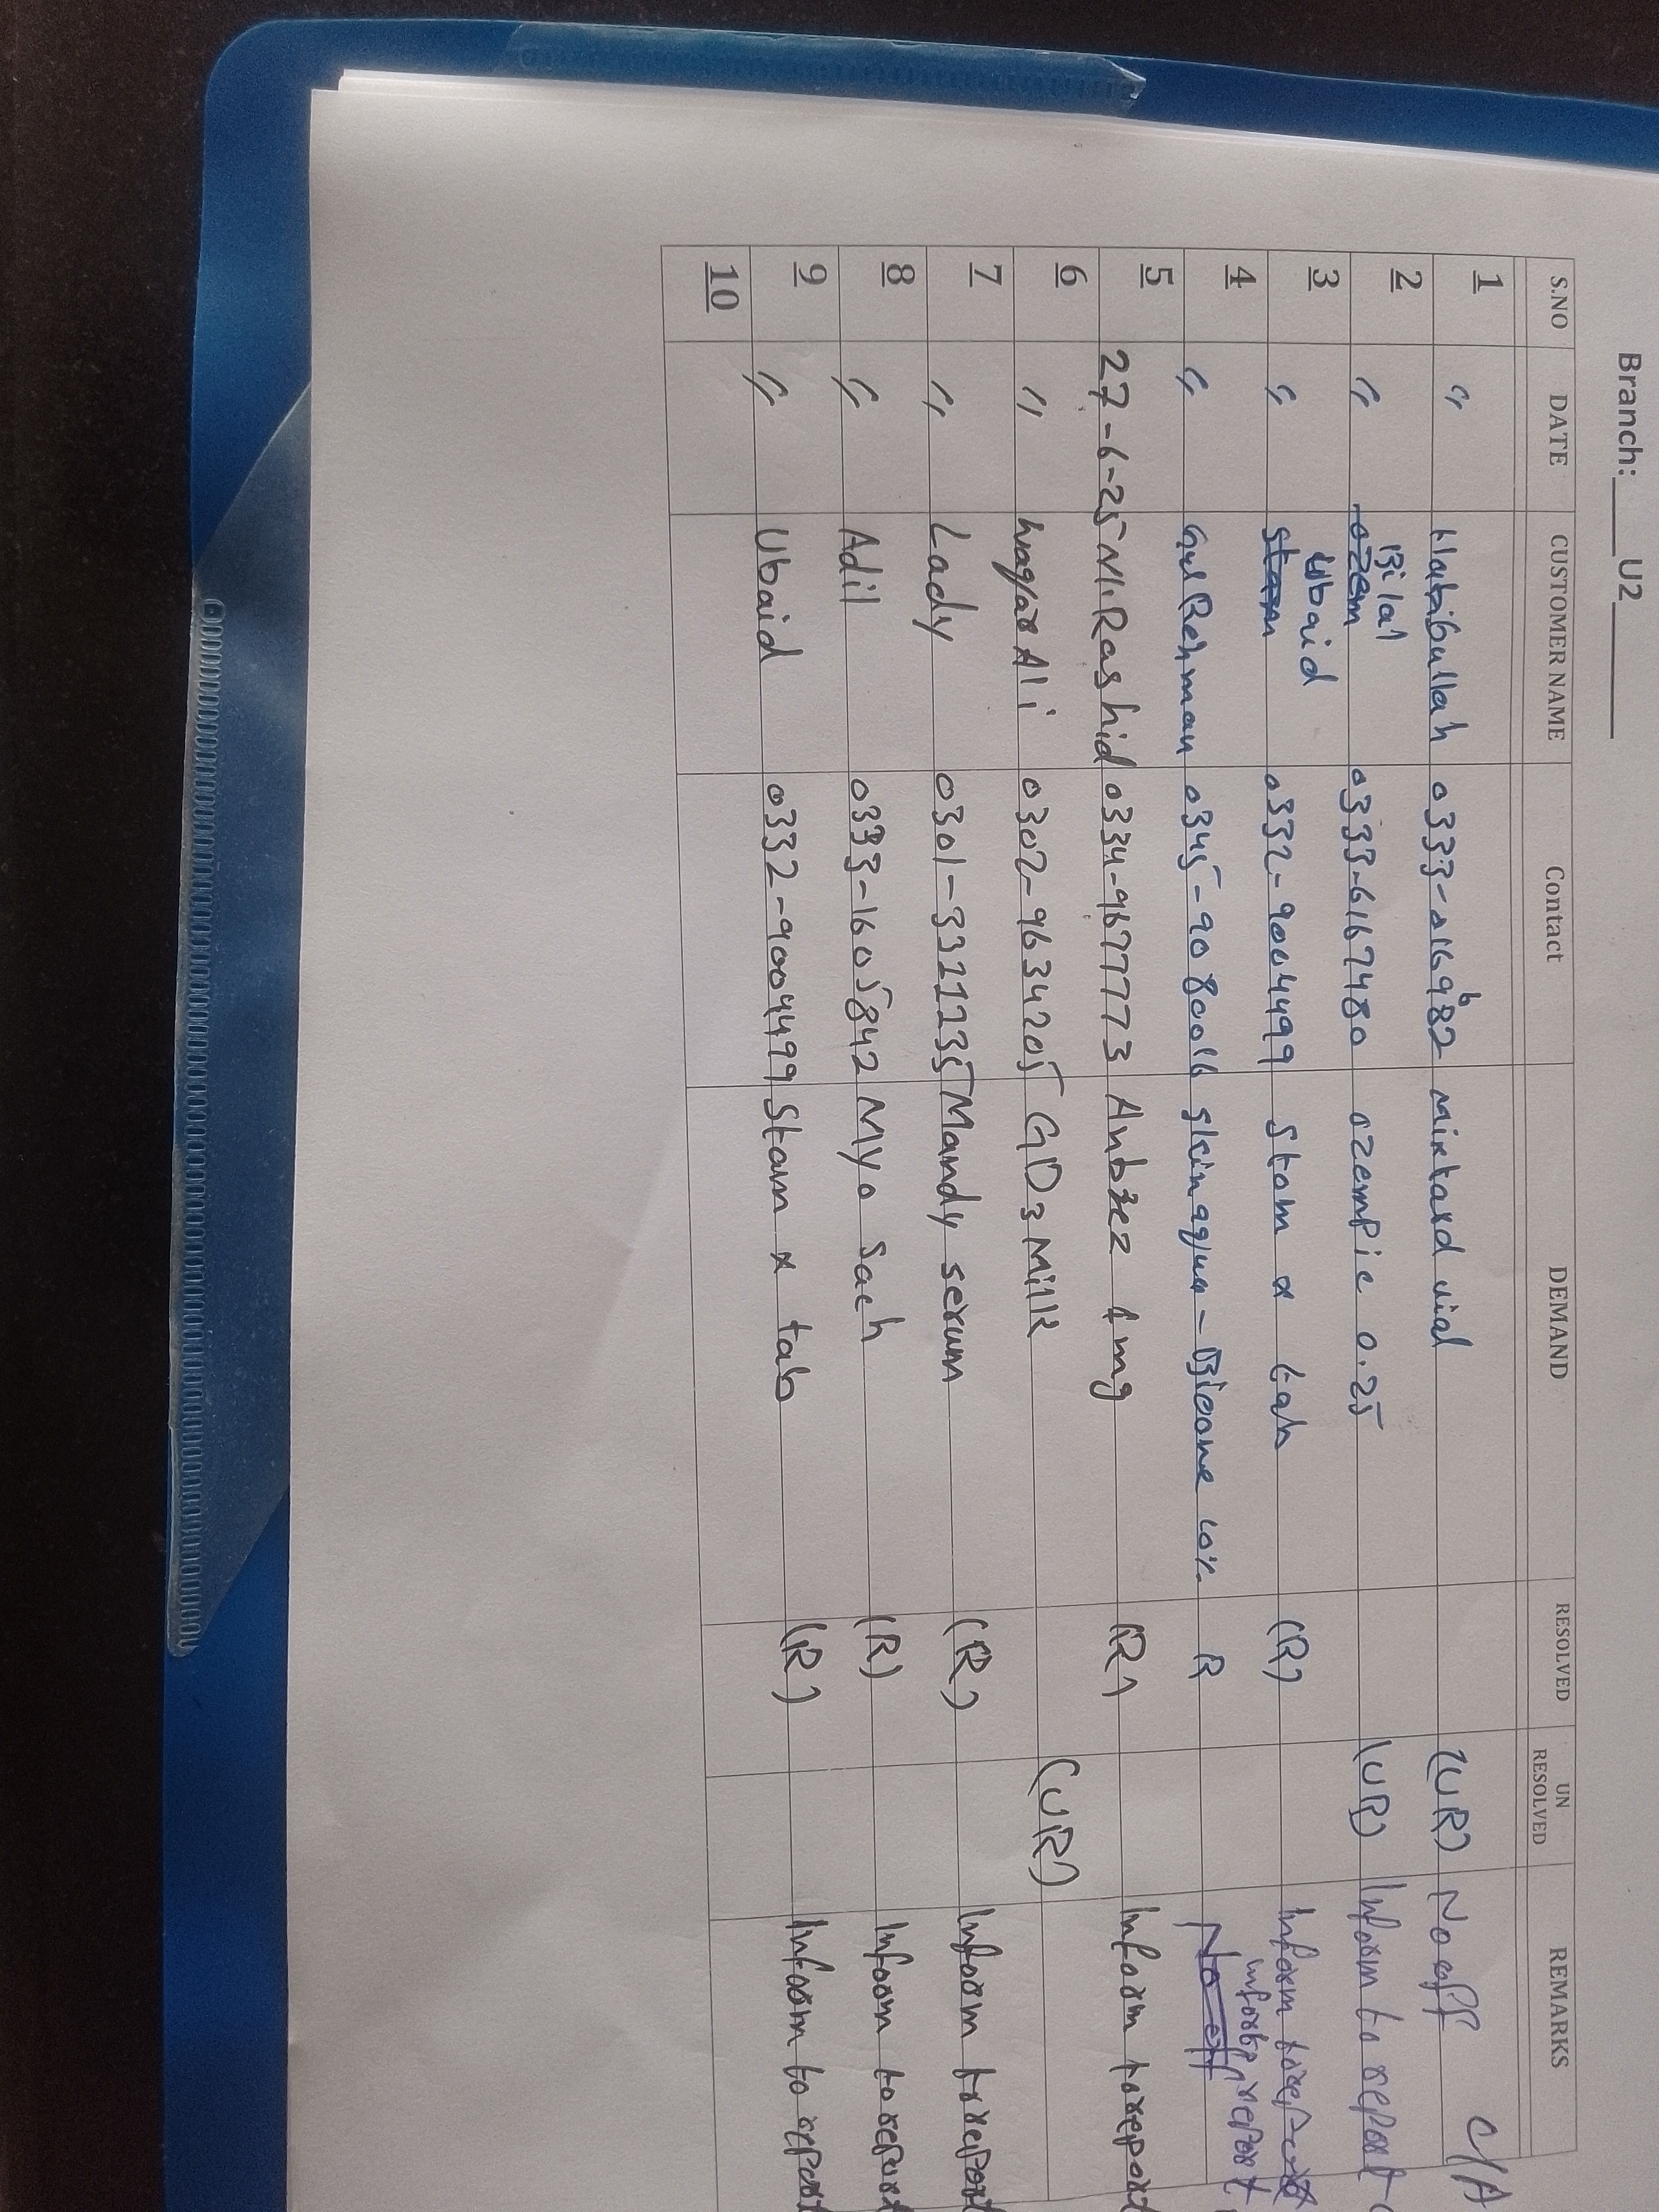 Branch: U2
S.NO DATE CUSTOMER NAME Contact DEMAND RESOLVED UN RESOLVED REMARKS
1 " Habibullah 0333-0169682 Mixtard vial (UR) No off C/A
2 " Bilal 0333-6167480 ozempic 0.25 (UR) Inform to report
3 " Ubaid 0332-9004499 Stam x tab (R) Inform to report
4 " Gul Rehman 0345-9080016 skin aqua - 10% R report
5 27-6-25 M. Rashid 0334-9677773 Anbzez 4mg (R) Inform to report
6 " Waqar Ali 0302-9634205 GD3 Milk (UR)
7 " Lady 0301-3321235 Mandy serum (R) Inform to report
8 " Adil 0333-1605842 Myo Sach (R) Inform to report
9 " Ubaid 0332-9004499 Stam x tab (R) Inform to report
10